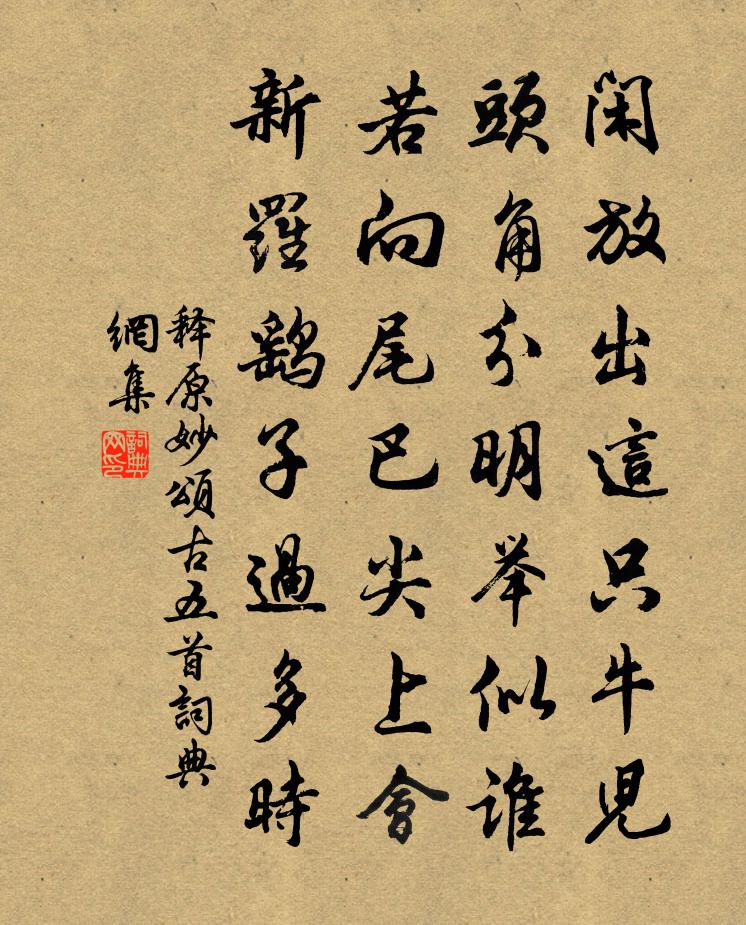 閑放出這只牛児
頭角分明举似誰
若向尾巴尖上會
新羅鷂子過多時
释原妙頌古五首詞典
網集
詞典
网印